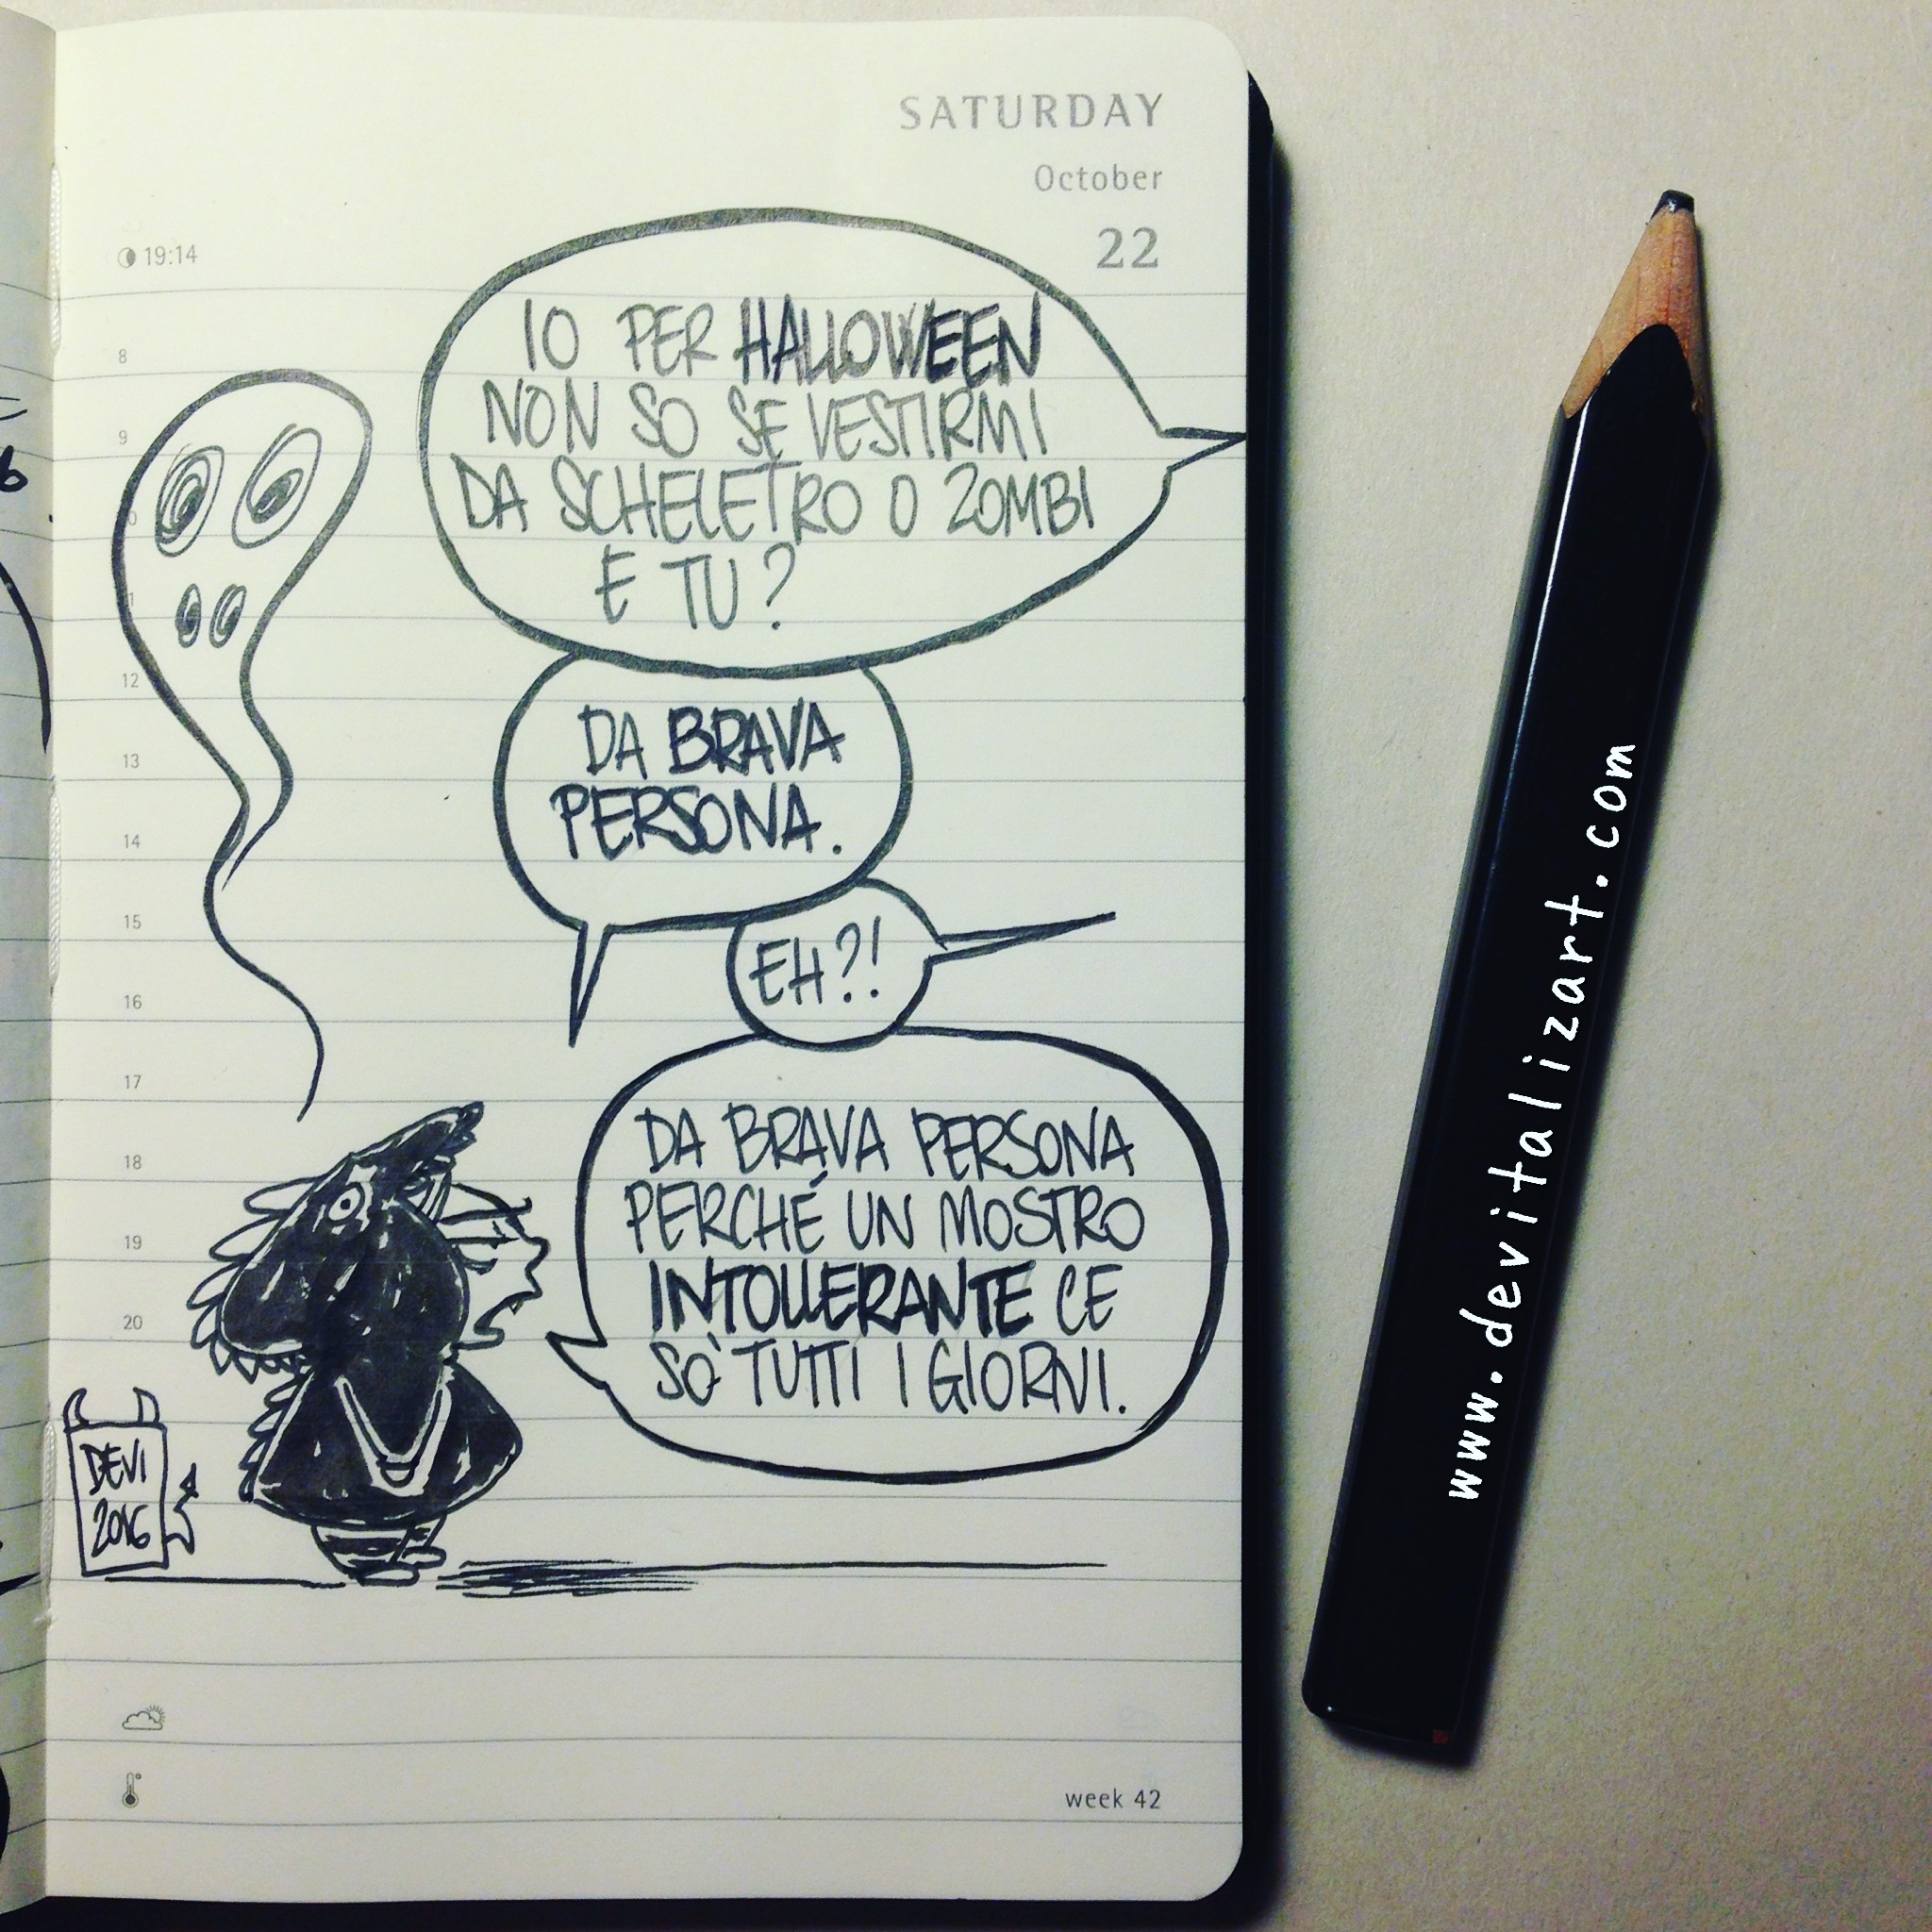 SATURDAY
October
22
19:14
8
9
10
11
12
13
14
15
16
17
18
19
20
IO PER HALLOWEEN
NON SO SE VESTIRMI
DA SCHELETRO O ZOMBI
E TU?
DA BRAVA
PERSONA.
EH?!
DA BRAVA PERSONA
PERCHÉ UN MOSTRO
INTOLLERANTE CE
SO' TUTTI I GIORNI.
DEVI
2016
week 42
www.devitalizart.com